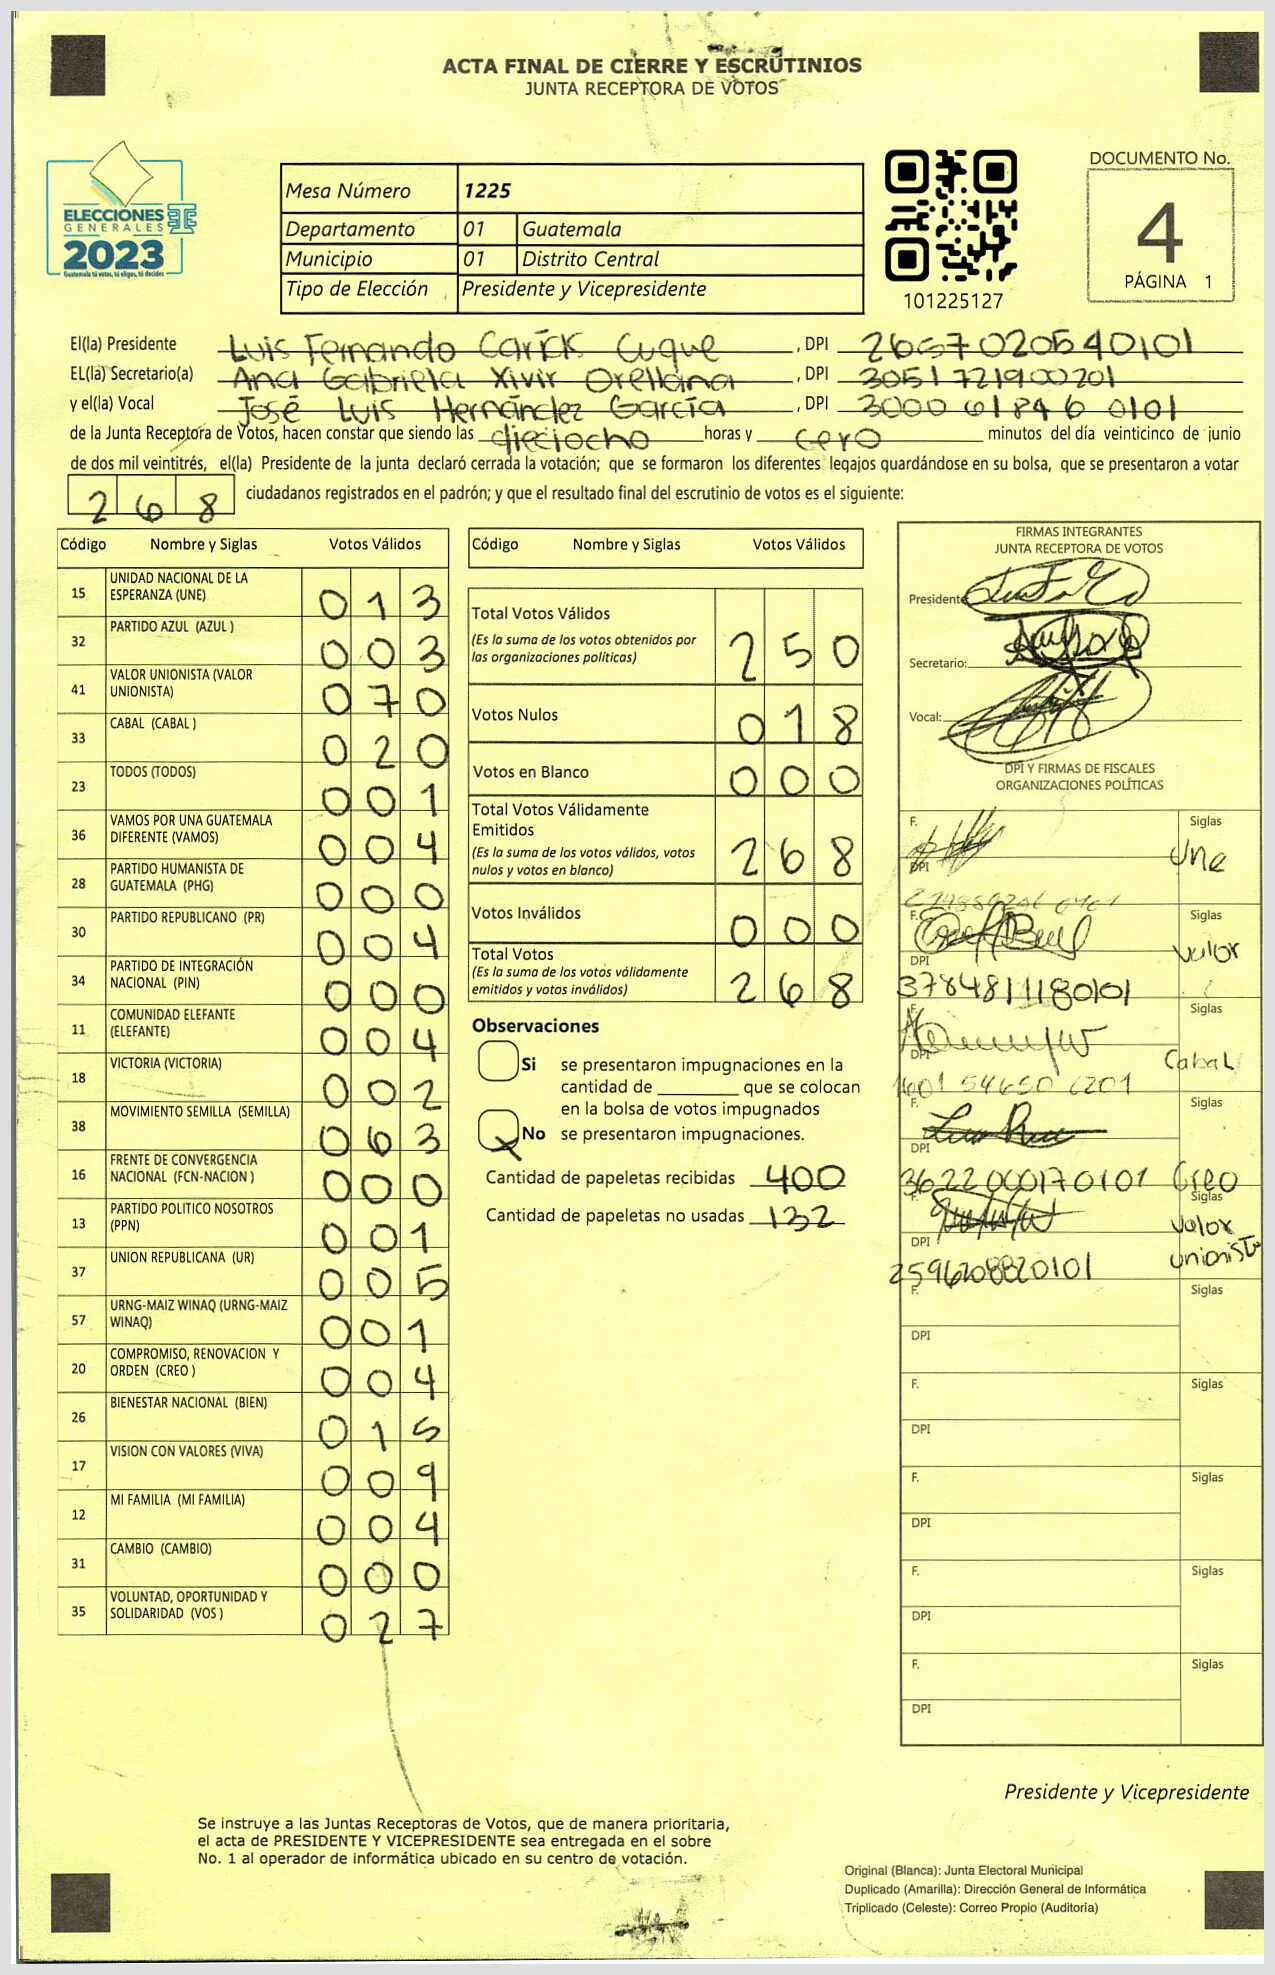 ACTA FINAL DE CIERRE Y ESCRUTINIOS
JUNTA RECEPTORA DE VOTOS
ELECCIONES
GENERALES
2023
Guatemala tú votas, tú eliges, tú decides
Mesa Número 1225
Departamento 01 Guatemala
Municipio 01 Distrito Central
Tipo de Elección Presidente y Vicepresidente
101225127
DOCUMENTO No.
4
PÁGINA 1
El(la) Presidente Luis Fernando Cuque , DPI 2667020540101
EL(la) Secretario(a) Ana Gabriela Xivir Orellana , DPI 3051721900201
y el(la) Vocal José Luis Hernández García , DPI 3000618460101
de la Junta Receptora de Votos, hacen constar que siendo las dieciocho horas y cero minutos del día veinticinco de junio
de dos mil veintitrés, el(la) Presidente de la junta declaró cerrada la votación; que se formaron los diferentes legajos guardándose en su bolsa, que se presentaron a votar
268 ciudadanos registrados en el padrón; y que el resultado final del escrutinio de votos es el siguiente:
Código Nombre y Siglas Votos Válidos
15 UNIDAD NACIONAL DE LA ESPERANZA (UNE) 013
32 PARTIDO AZUL (AZUL ) 003
41 VALOR UNIONISTA (VALOR UNIONISTA) 070
33 CABAL (CABAL ) 020
23 TODOS (TODOS) 001
36 VAMOS POR UNA GUATEMALA DIFERENTE (VAMOS) 004
28 PARTIDO HUMANISTA DE GUATEMALA (PHG) 000
30 PARTIDO REPUBLICANO (PR) 004
34 PARTIDO DE INTEGRACIÓN NACIONAL (PIN) 000
11 COMUNIDAD ELEFANTE (ELEFANTE) 004
18 VICTORIA (VICTORIA) 002
38 MOVIMIENTO SEMILLA (SEMILLA) 063
16 FRENTE DE CONVERGENCIA NACIONAL (FCN-NACION ) 000
13 PARTIDO POLITICO NOSOTROS (PPN) 001
37 UNION REPUBLICANA (UR) 005
57 URNG-MAIZ WINAQ (URNG-MAIZ WINAQ) 001
20 COMPROMISO, RENOVACION Y ORDEN (CREO ) 004
26 BIENESTAR NACIONAL (BIEN) 015
17 VISION CON VALORES (VIVA) 009
12 MI FAMILIA (MI FAMILIA) 004
31 CAMBIO (CAMBIO) 000
35 VOLUNTAD, OPORTUNIDAD Y SOLIDARIDAD (VOS ) 027
Código Nombre y Siglas Votos Válidos
Total Votos Válidos
(Es la suma de los votos obtenidos por
las organizaciones políticas) 250
Votos Nulos 018
Votos en Blanco 000
Total Votos Válidamente
Emitidos
(Es la suma de los votos válidos, votos
nulos y votos en blanco) 268
Votos Inválidos 000
Total Votos
(Es la suma de los votos válidamente
emitidos y votos inválidos) 268
Observaciones
Si se presentaron impugnaciones en la
cantidad de ________ que se colocan
en la bolsa de votos impugnados
X No se presentaron impugnaciones.
Cantidad de papeletas recibidas 400
Cantidad de papeletas no usadas 132
FIRMAS INTEGRANTES
JUNTA RECEPTORA DE VOTOS
Presidente:
Secretario:
Vocal:
DPI Y FIRMAS DE FISCALES
ORGANIZACIONES POLÍTICAS
F. Siglas
DPI Une
F. Siglas
DPI Valor
3784811180101
F. Siglas
DPI Cabal
1601 54650 6201
F. Siglas
DPI
3622000170101 Creo
Siglas
DPI Valor unionista
2596208820101
F. Siglas
DPI
F. Siglas
DPI
F. Siglas
DPI
F. Siglas
DPI
F. Siglas
DPI
Presidente y Vicepresidente
Se instruye a las Juntas Receptoras de Votos, que de manera prioritaria,
el acta de PRESIDENTE Y VICEPRESIDENTE sea entregada en el sobre
No. 1 al operador de informática ubicado en su centro de votación.
Original (Blanca): Junta Electoral Municipal
Duplicado (Amarilla): Dirección General de Informática
Triplicado (Celeste): Correo Propio (Auditoria)